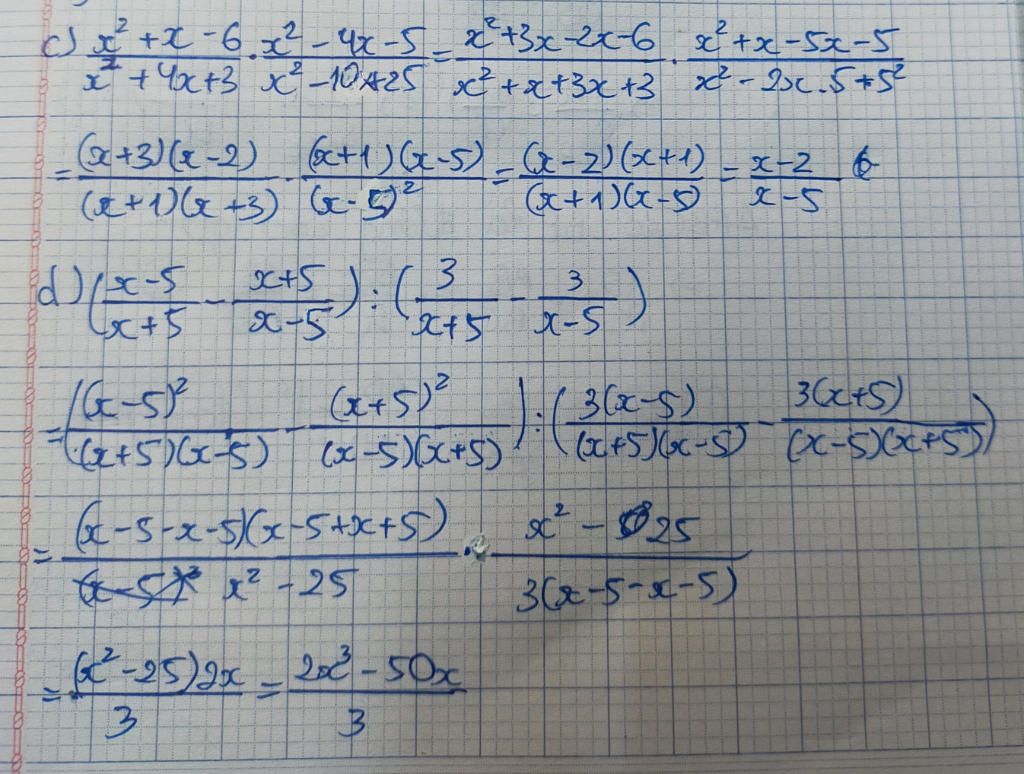 c) (x² + x - 6)/(x² + 4x + 3) · (x² - 4x - 5)/(x² - 10x + 25) = (x² + 3x - 2x - 6)/(x² + x + 3x + 3) · (x² + x - 5x - 5)/(x² - 2x . 5 + 5²)
= ((x+3)(x-2))/((x+1)(x+3)) · ((x+1)(x-5))/((x-5)²) = ((x-2)(x+1))/((x+1)(x-5)) = (x-2)/(x-5)
d) ((x-5)/(x+5) - (x+5)/(x-5)) : (3/(x+5) - 3/(x-5))
= ((x-5)²/((x+5)(x-5)) - (x+5)²/((x-5)(x+5))) : (3(x-5)/((x+5)(x-5)) - 3(x+5)/((x-5)(x+5)))
= ((x-5-x-5)(x-5+x+5))/(x² - 25) · (x² - 25)/(3(x-5-x-5))
= ((x² - 25)2x)/3 = (2x³ - 50x)/3